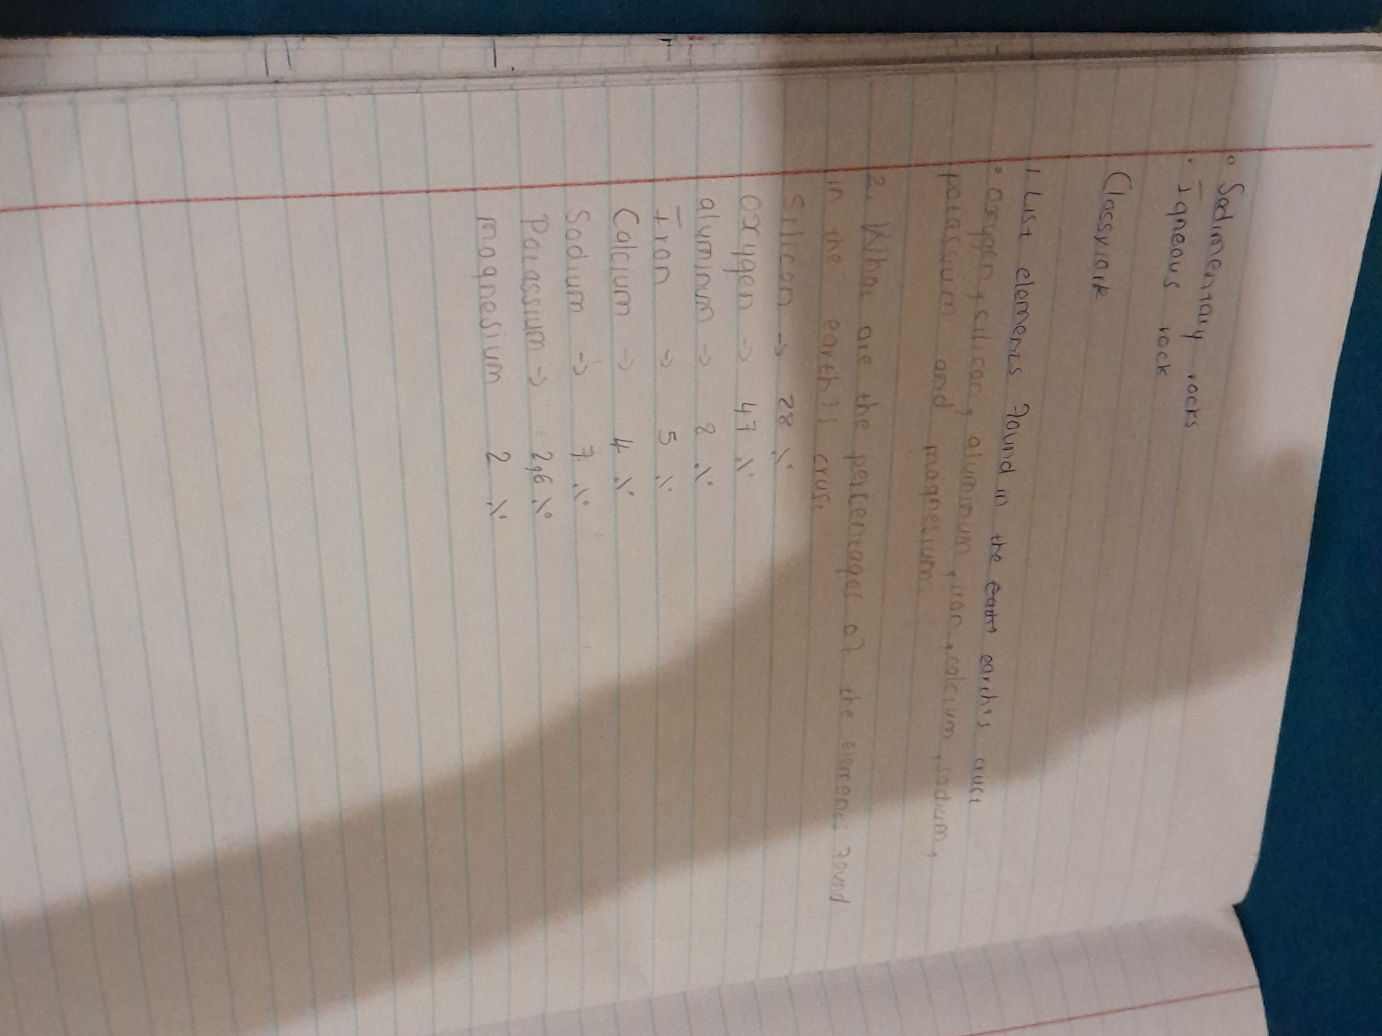 ° Sedimentary rocks
· Igneous rock
Classwork
1. List elements found in the earth's crust
• oxygen, silicon, aluminum, iron, calcium, sodium,
potassium and magnesium
2. What are the percentages of the elements found
in the earth's crust
Silicon → 28 %
Oxygen → 47 %
aluminum → 8 %
Iron → 5 %
Calcium → 4 %
Sodium → 7. %
Potassium → 2,6 %
magnesium 2 %